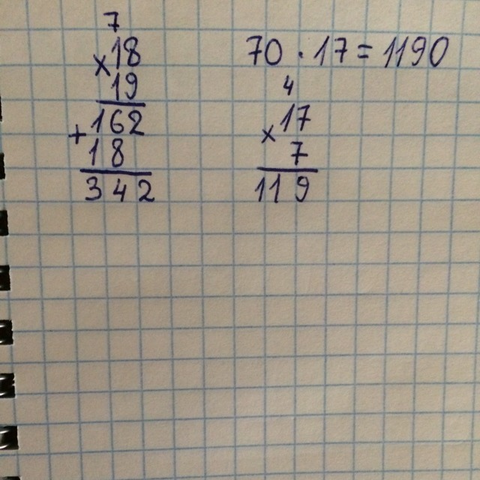 7
×18
19
+162
18
342
70 · 17 = 1190
4
×17
7
119